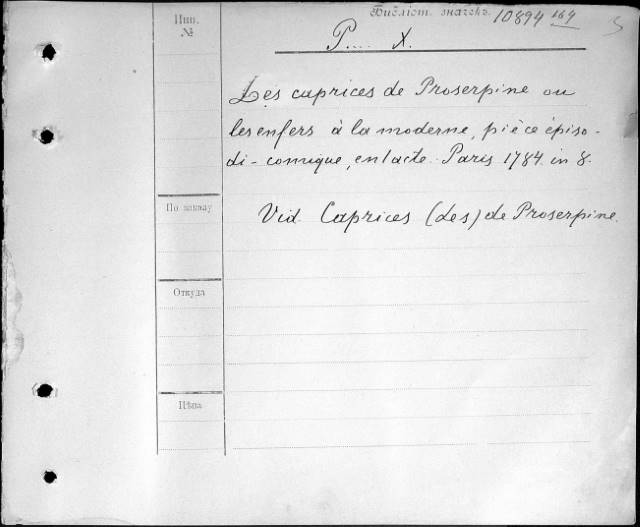 Инв. №
Библіот. значекъ. 10894 164
P.... X.
Les caprices de Proserpine ou
les enfers à la moderne, pièce épiso-
di-comique, en 1 acte. Paris 1784. in 8.
По заказу
Vid. Caprices (Les) de Proserpine.
Откуда
Цѣна